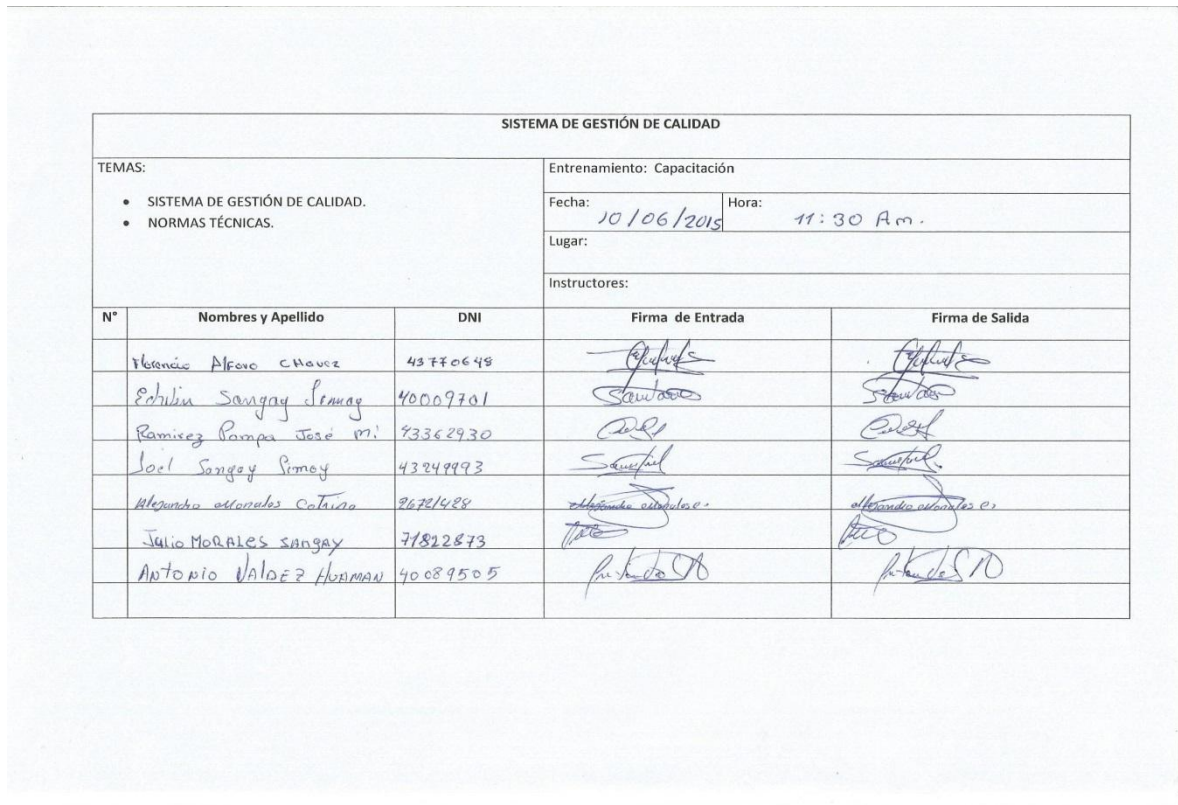 SISTEMA DE GESTIÓN DE CALIDAD
TEMAS:
• SISTEMA DE GESTIÓN DE CALIDAD.
• NORMAS TÉCNICAS.
Entrenamiento: Capacitación
Fecha: 10/06/2015 Hora: 11:30 Am.
Lugar:
Instructores:
N° Nombres y Apellido DNI Firma de Entrada Firma de Salida
Florencio Alfaro CHavez 43770648
Sangay 40009701
Ramirez Pampa José M. 43362930
Joel Sangay 43249993
Alejandro Cotrina 26721428
Julio MORALES SANgAY 71822873
ANTONIO VALDEZ HUAMAN 40089505